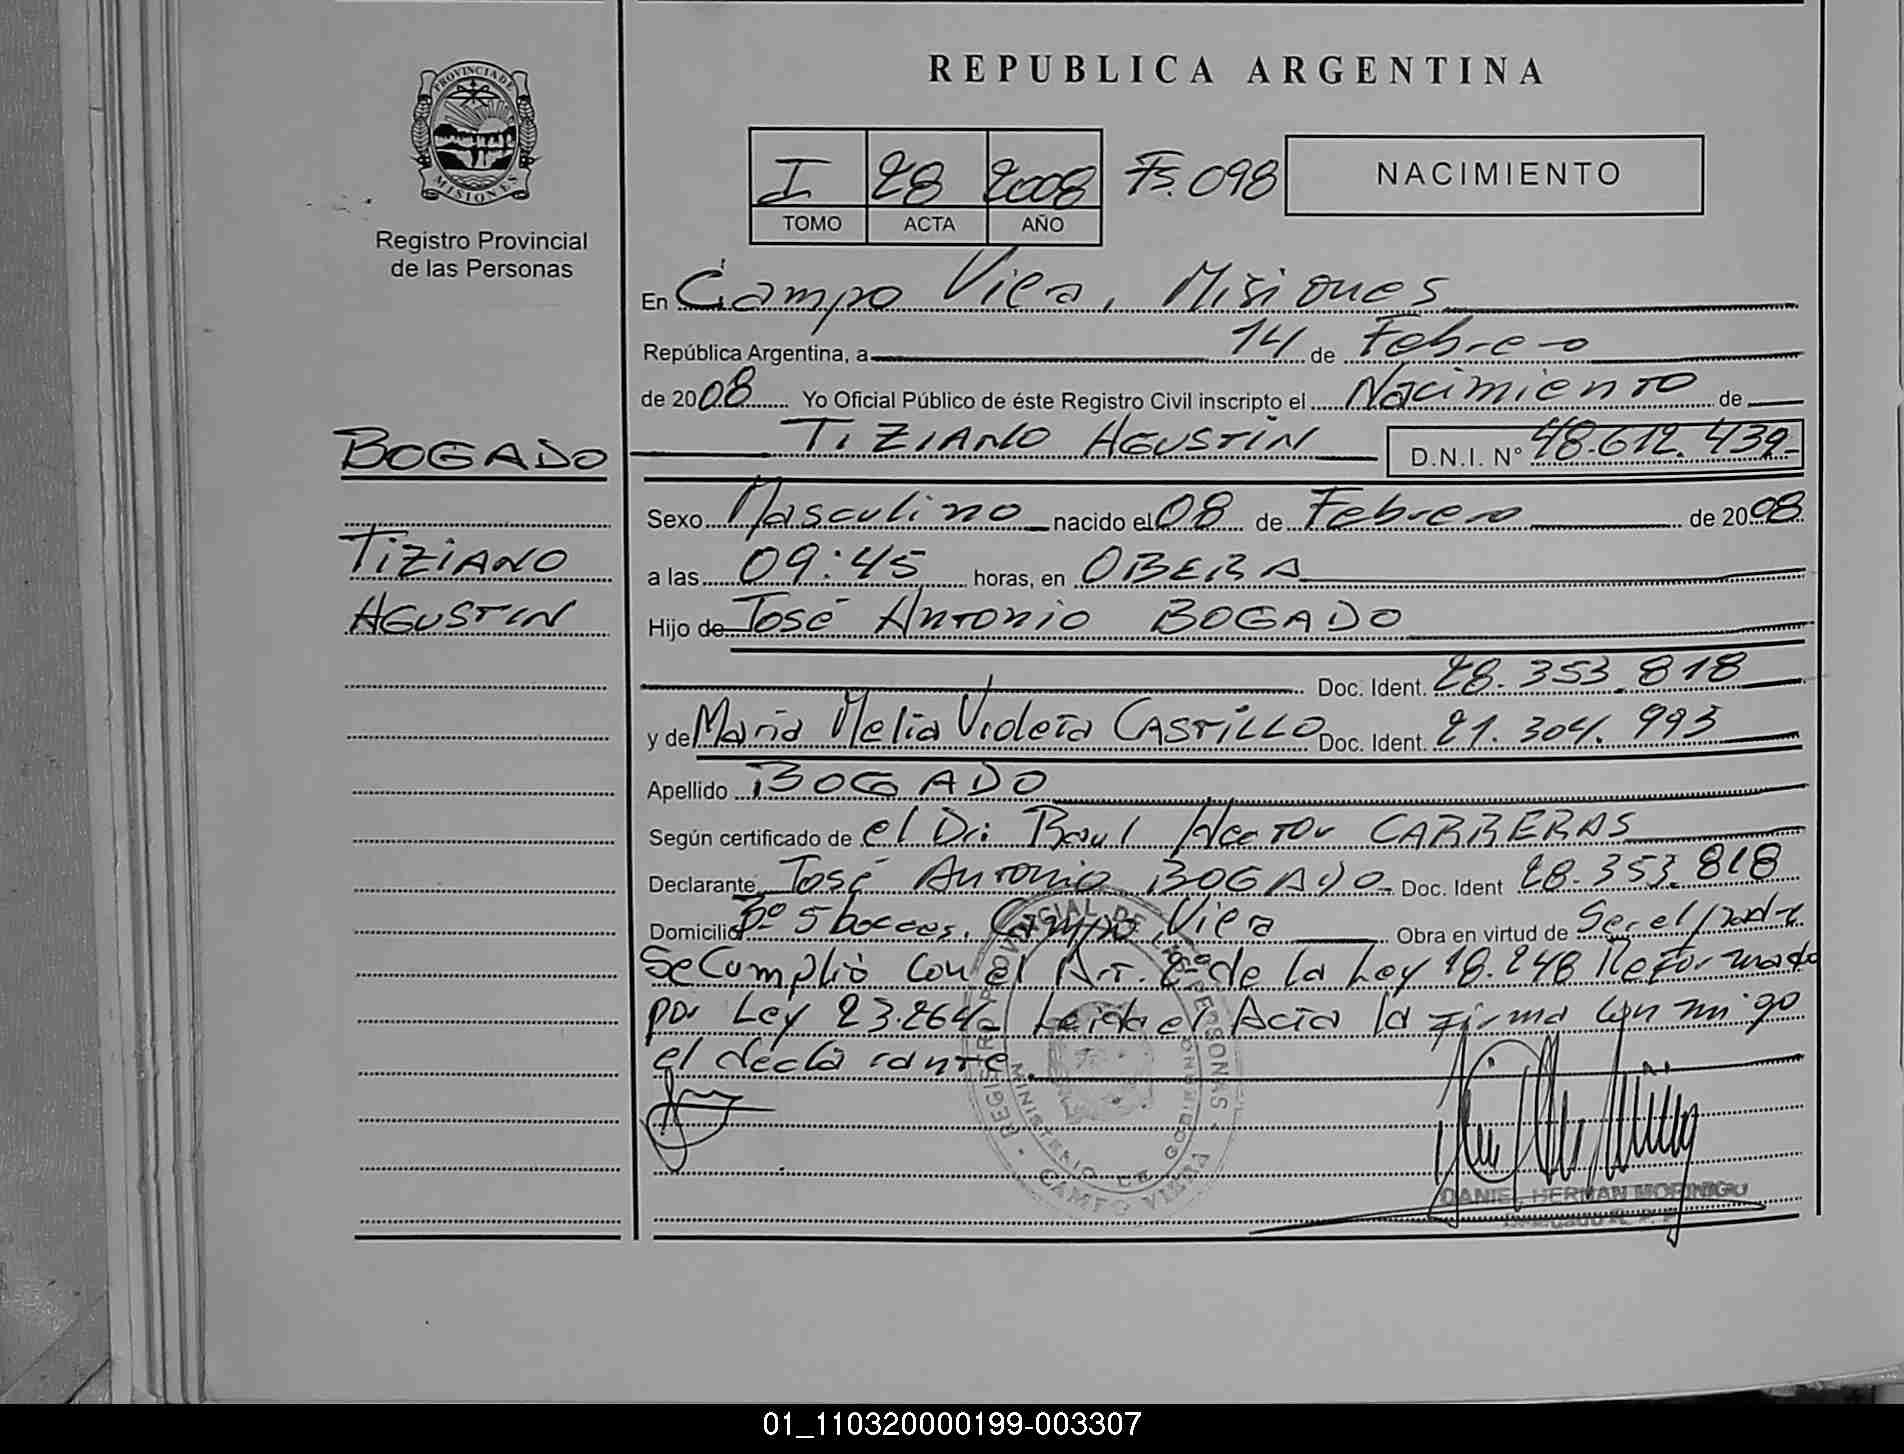 PROVINCIA DE
MISIONES
Registro Provincial
de las Personas
REPUBLICA ARGENTINA
I 28 2008 Fs. 098
TOMO ACTA AÑO
NACIMIENTO
En Campo Viera, Misiones
República Argentina, a 14 de Febrero
de 2008 Yo Oficial Público de éste Registro Civil inscripto el Nacimiento de
BOGADO
TIZIANO AGUSTIN D.N.I. N° 48.612.439-
Sexo Masculino nacido el 08 de Febrero de 2008
TIZIANO
a las 09:45 horas, en OBERA
AGUSTIN
Hijo de José Antonio BOGADO
Doc. Ident. 28.353.818
y de Maria Melia Violeta CASTILLO Doc. Ident. 21.304.993
Apellido BOGADO
Según certificado de el Dr: Raul Hector CARRERAS
Declarante José Antonio BOGADO Doc. Ident 28.353.818
Domicilio Bº 5 bocas, Campo Viera Obra en virtud de Ser el padre
Se Cumplió con el Art. 2º de la Ley 18.248 Reformado
por Ley 23.264- Leida el Acta la firma conmigo
el declarante
REGISTRO PROVINCIAL DE LAS PERSONAS
MINISTERIO DE GOBIERNO
CAMPO VIERA
DANIEL HERNAN MORINIGO
01_110320000199-003307